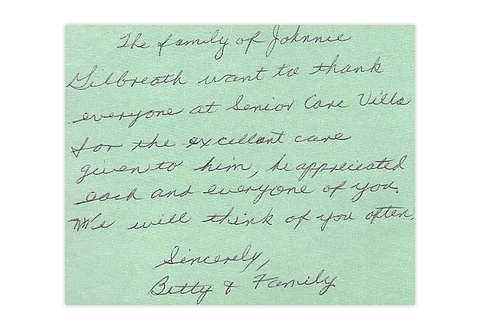 The family of Johnnie
Gilbreath want to thank
everyone at Senior Care Villa
for the excellent care
given to him, he appreciated
each and everyone of you.
We will think of you often.
Sincerely,
Betty & Family